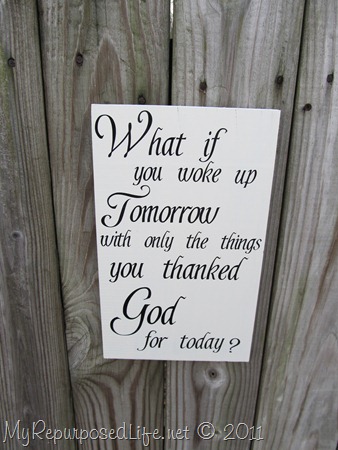 What if
you woke up
Tomorrow
with only the things
you thanked
God
for today?
MyRepurposedLife.net © 2011